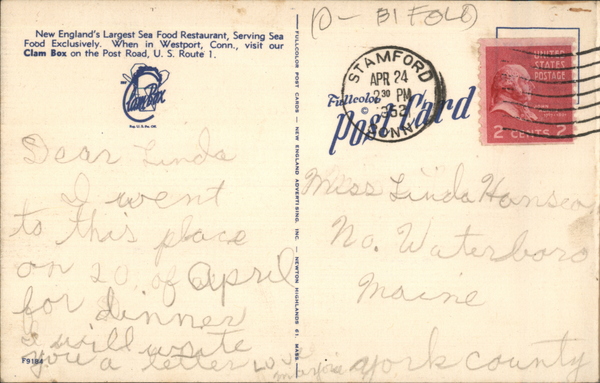 (O - BI FOLD)
New England's Largest Sea Food Restaurant, Serving Sea
Food Exclusively. When in Westport, Conn., visit our
Clam Box on the Post Road, U. S. Route 1.
Clam Box
Reg. U. S. Pat. Off.
FULLCOLOR POST CARDS — NEW ENGLAND ADVERTISING, INC. — NEWTON HIGHLANDS 61, MASS.
STAMFORD
APR 24
2 30 PM
1952
CONN.
UNITED
STATES
POSTAGE
2 CENTS 2
Fullcolor
©
Post Card
Dear Linda
I went
to this place
on 20 of April
for dinner
I will write
you a letter Love
Miss Linda Hansen
No. Waterboro
Maine
York County
F9184